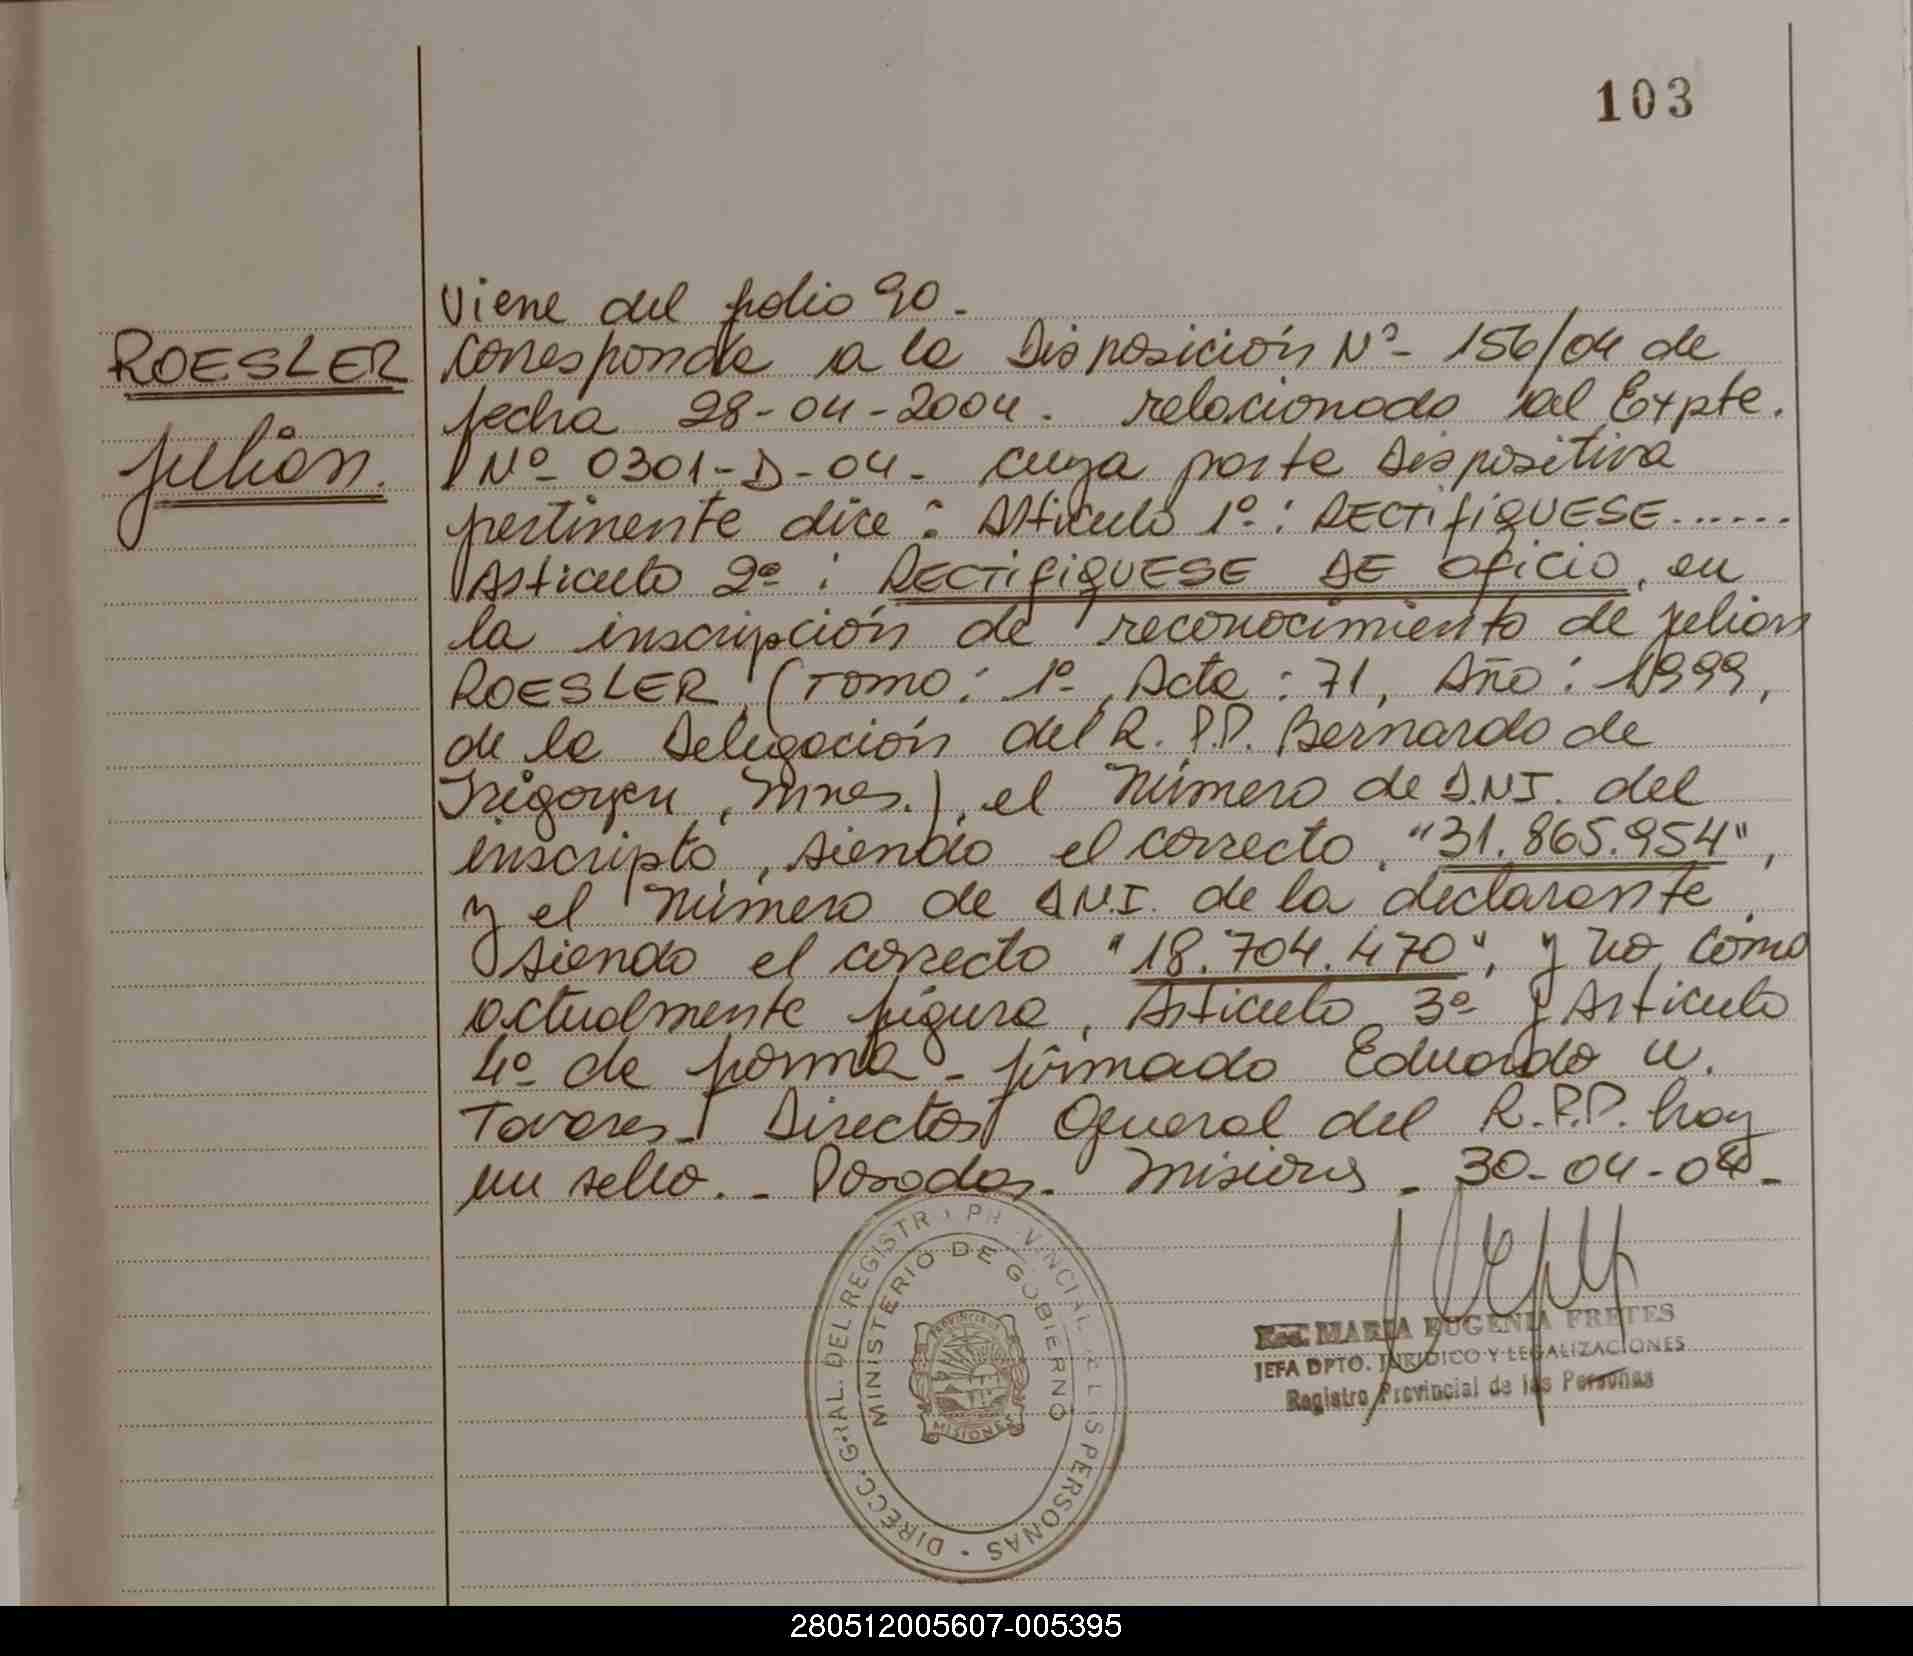 103
ROESLER
Julián.
Viene del folio 90.-
Corresponde a la Disposición Nº- 156/04 de
fecha 28-04-2004. relacionado al Expte.
Nº- 0301-D-04- cuya parte dispositiva
pertinente dice: Artículo 1º: RECTIFIQUESE......
Artículo 2º: RECTIFIQUESE DE OFICIO, en
la inscripción de reconocimiento de Julián
ROESLER, (Tomo: 1º, Acta: 71, Año: 1999,
de la Delegación del R.P.P. Bernardo de
Irigoyen, Mnes.), el Número de D.N.I. del
inscripto, siendo el correcto, "31.865.954",
y el Número de D.N.I. de la declarante,
siendo el correcto "18.704.470", y no como
actualmente figura, Artículo 3º y Artículo
4º de forma - firmado Eduardo
Tavares - Director General del R.P.P. hay
un sello. - Posadas - Misiones - 30-04-04-
DIRECC. GRAL. DEL REGISTRO PROVINCIAL DE LAS PERSONAS
MINISTERIO DE GOBIERNO
PROVINCIA DE
MISIONES
MARIA EUGENIA FRETES
JEFA DPTO. JURIDICO Y LEGALIZACIONES
Registro Provincial de las Personas
280512005607-005395